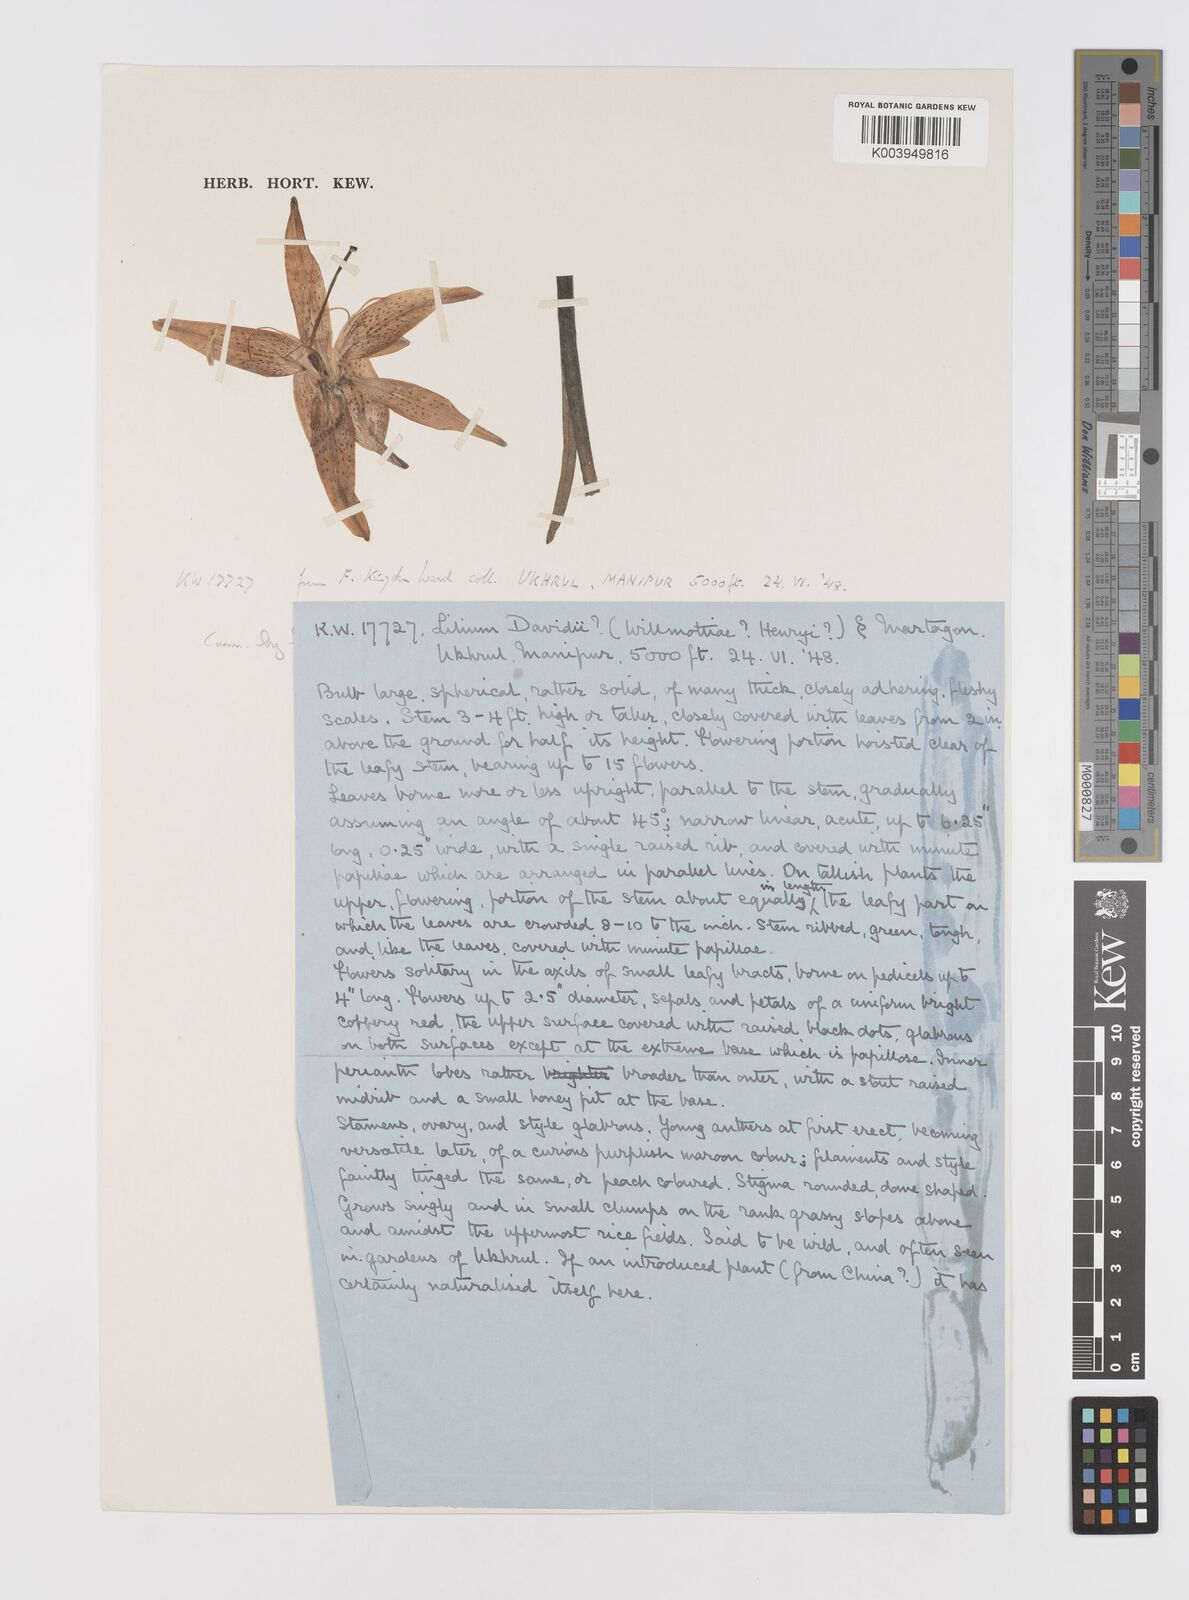 ROYAL BOTANIC GARDENS KEW
K003949816
HERB. HORT. KEW.
KW 17727 from F. Kingdon Ward coll. UKHRUL, MANIPUR 5000 ft. 24. VI. '48.
Comm. by
K.W. 17727. Lilium Davidii? (Willmottiae? Henryi?) § Martagon.
Ukhrul, Manipur, 5000 ft. 24. VI. '48.
Bulb large, spherical, rather solid, of many thick, closely adhering, fleshy
scales. Stem 3-4 ft. high or taller, closely covered with leaves from 2 in.
above the ground for half its height. Flowering portion hoisted clear of
the leafy stem, bearing up to 15 flowers.
Leaves borne more or less upright, parallel to the stem, gradually
assuming an angle of about 45°; narrow linear, acute, up to 6.25"
long, 0.25" wide, with a single raised rib, and covered with minute
papillae which are arranged in parallel lines. On tallish plants the
upper, flowering, portion of the stem about equally in length the leafy part on
which the leaves are crowded 8-10 to the inch. Stem ribbed, green, tough,
and, like the leaves, covered with minute papillae.
Flowers solitary in the axils of small leafy bracts, borne on pedicels up to
4" long. Flowers up to 2.5" diameter, sepals and petals of a uniform bright
coppery red, the upper surface covered with raised black dots, glabrous
on both surfaces except at the extreme base which is papillose. Inner
perianth lobes rather brighter broader than outer, with a stout raised
midrib and a small honey pit at the base.
Stamens, ovary, and style glabrous. Young anthers at first erect, becoming
versatile later, of a curious purplish maroon colour; filaments and style
faintly tinged the same, or peach coloured. Stigma rounded, dome shaped.
Grows singly and in small clumps on the rank grassy slopes above
and amidst the uppermost rice fields. Said to be wild, and often seen
in gardens of Ukhrul. If an introduced plant (from China?) it has
certainly naturalised itself here.
inches
centimeters
Density
Don Williams
M000827
Royal Botanic Gardens
Kew
copyright reserved
0 1 2 3 4 5 6 7 8 9 10
cm